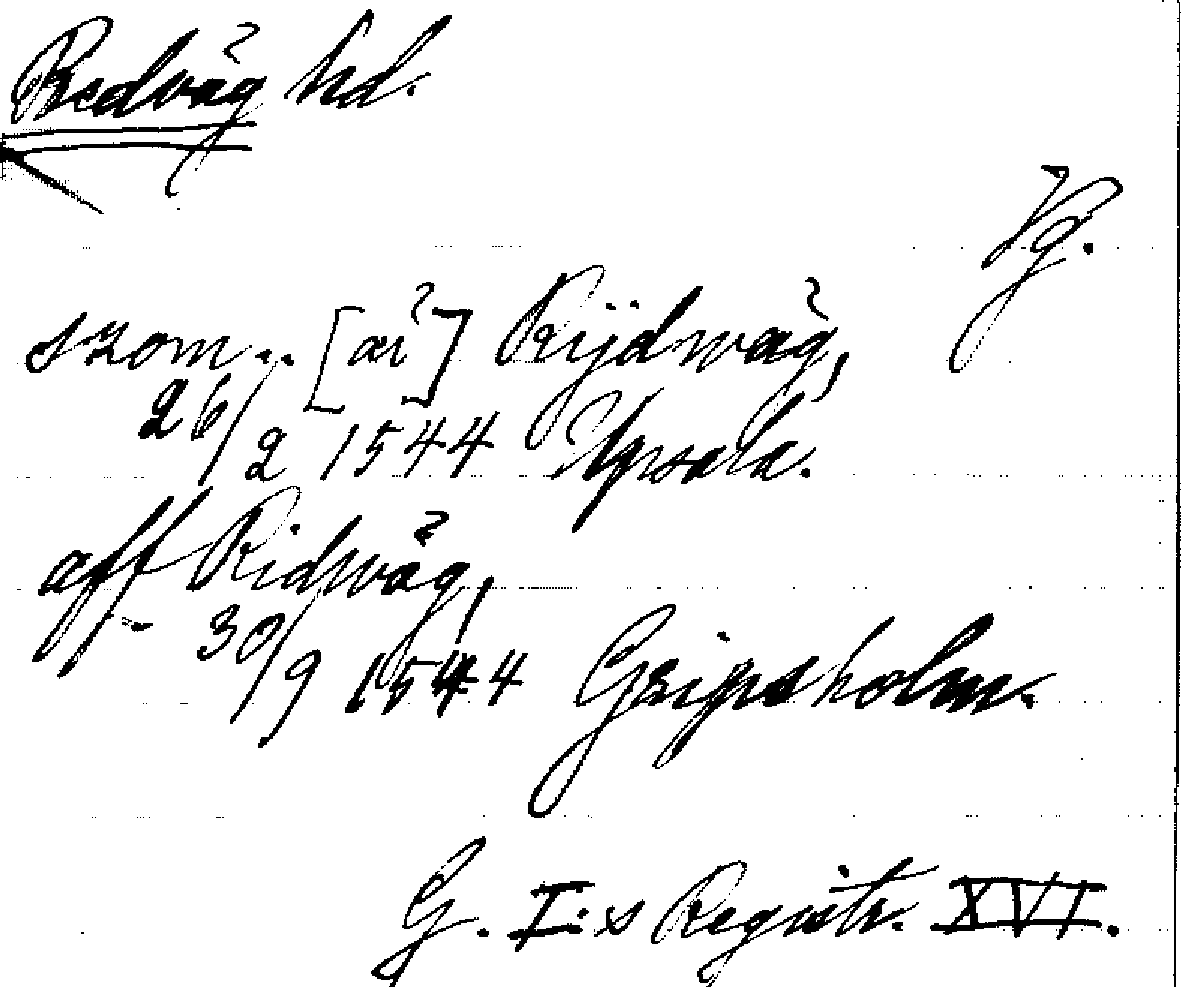 Redvåg hd.
Vg.
szom.. [är] Rijdwåg,
26/2 1544 Upsala.
aff Ridwåg,
30/9 1544 Gripsholm.
G. I:s Registr. XVI.